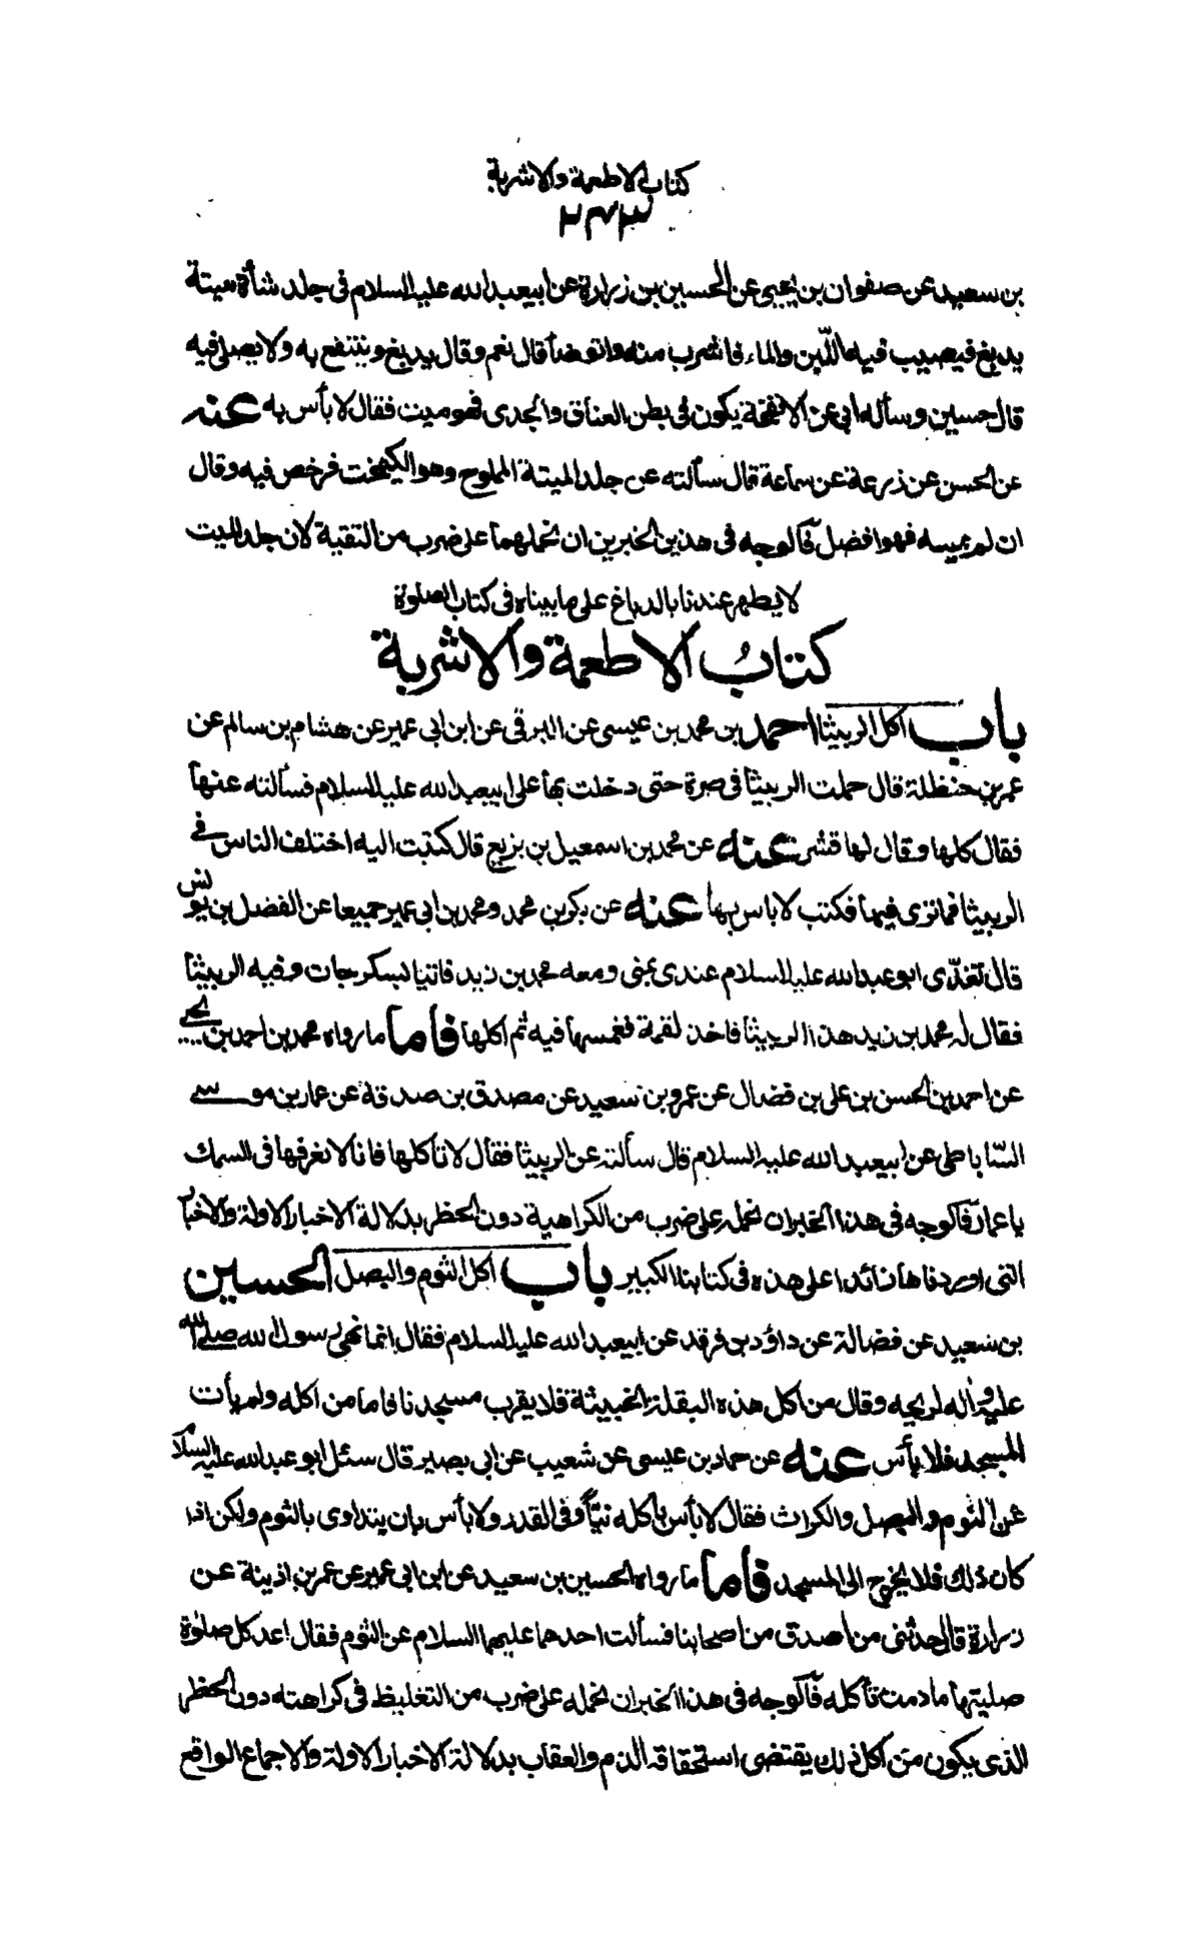 كتاب الاطعمة والاشربة
٢٤٣
بن سعيد عن صفوان بن يحيى عن الحسين بن زرارة عن ابيعبد الله عليه السلام فى جلد شأة ميتة
يدبغ فيصيب فيه اللّبن والماء فاشرب منه واتوضأ قال نعم وقال يدبغ وينتفع به ولا يصلى فيه
قال حسين وسأله ابى عن الانفحة يكون فى بطن العناق والجدى فهو ميت فقال لا بأس به عنه
عن الحسن عن زرعة عن سماعة قال سألته عن جلد الميتة المملوح وهو الكيمخت فرخص فيه وقال
ان لم يمسه فهو افضل فآلوجه فى هذين الخبرين ان نحملهما على ضرب من التقية لان جلد الميت
لا يطهر عندنا بالدباغ على ما بيناه فى كتاب الصلوة
كتابُ الاطعمة والاشربة
باب اكل الربيثا احمد بن محمد بن عيسى عن البرقى عن ابن ابى عمير عن هشام بن سالم عن
عمر بن حنظلة قال حملت الربيثا فى صرة حتى دخلت بها على ابيعبد الله عليه السلام فسألته عنها
فقال كلها وقال لها قشر عنه عن محمد بن اسمعيل بن بزيع قال كتبت اليه اختلف الناس فى
الربيثا فما ترى فيها فكتب لا باس بها عنه عن بكر بن محمد ومحمد بن ابى عمير جميعا عن الفضل بن يونس
قال تغدّى ابو عبد الله عليه السلام عندى بمنى ومعه محمد بن زيد فاتيا بسكرجات وفيه الربيثا
فقال له محمد بن زيد هذا الربيثا فاخذ لقمة فغمسها فيه ثم اكلها فأما ما رواه محمد بن احمد بن يحيى
عن احمد بن الحسن بن على بن فضال عن عمرو بن سعيد عن مصدق بن صدقة عن عمار بن موسى
السّاباطى عن ابيعبد الله عليه السلام قال سألته عن الربيثا فقال لا تأكلها فانا لا نعرفها فى السمك
يا عمار فآلوجه فى هذا الخبران نحمله على ضرب من الكراهية دون الحظر بدلالة الاخبار الاولة والاخبار
التى اوردناها زائدا على هذه فى كتابنا الكبير باب اكل الثوم والبصل الحسين
بن سعيد عن فضالة عن داؤد بن فرقد عن ابيعبد الله عليه السلام فقال انما نهى رسول الله صلى الله
عليه وآله لريحه وقال من اكل هذه البقلة الخبيثة فلا يقرب مسجدنا فاما من اكله ولم يأت
المسجد فلا بأس عنه عن حماد بن عيسى عن شعيب عن ابى بصير قال سئل ابو عبد الله عليه السلام
عن الثوم والبصل والكراث فقال لا بأس بأكله نيّاً وفى القدر ولا بأس بان يتداوى بالثوم ولكن اذا
كان ذلك فلا يخرج الى المسجد فأما ما رواه الحسين بن سعيد عن ابن ابى عمير عن عمر بن اذينة عن
زرارة قال حدثنى من اصدق من اصحابنا فسألت احدهما عليهما السلام عن الثوم فقال اعد كل صلوة
صليتها ما دمت تأكله فآلوجه فى هذا الخبران نحمله على ضرب من التغليظ فى كراهته دون الحظر
الذى يكون من اكل ذلك يقتضى استحقاقه الذم والعقاب بدلالة الاخبار الاولة والاجماع الواقع